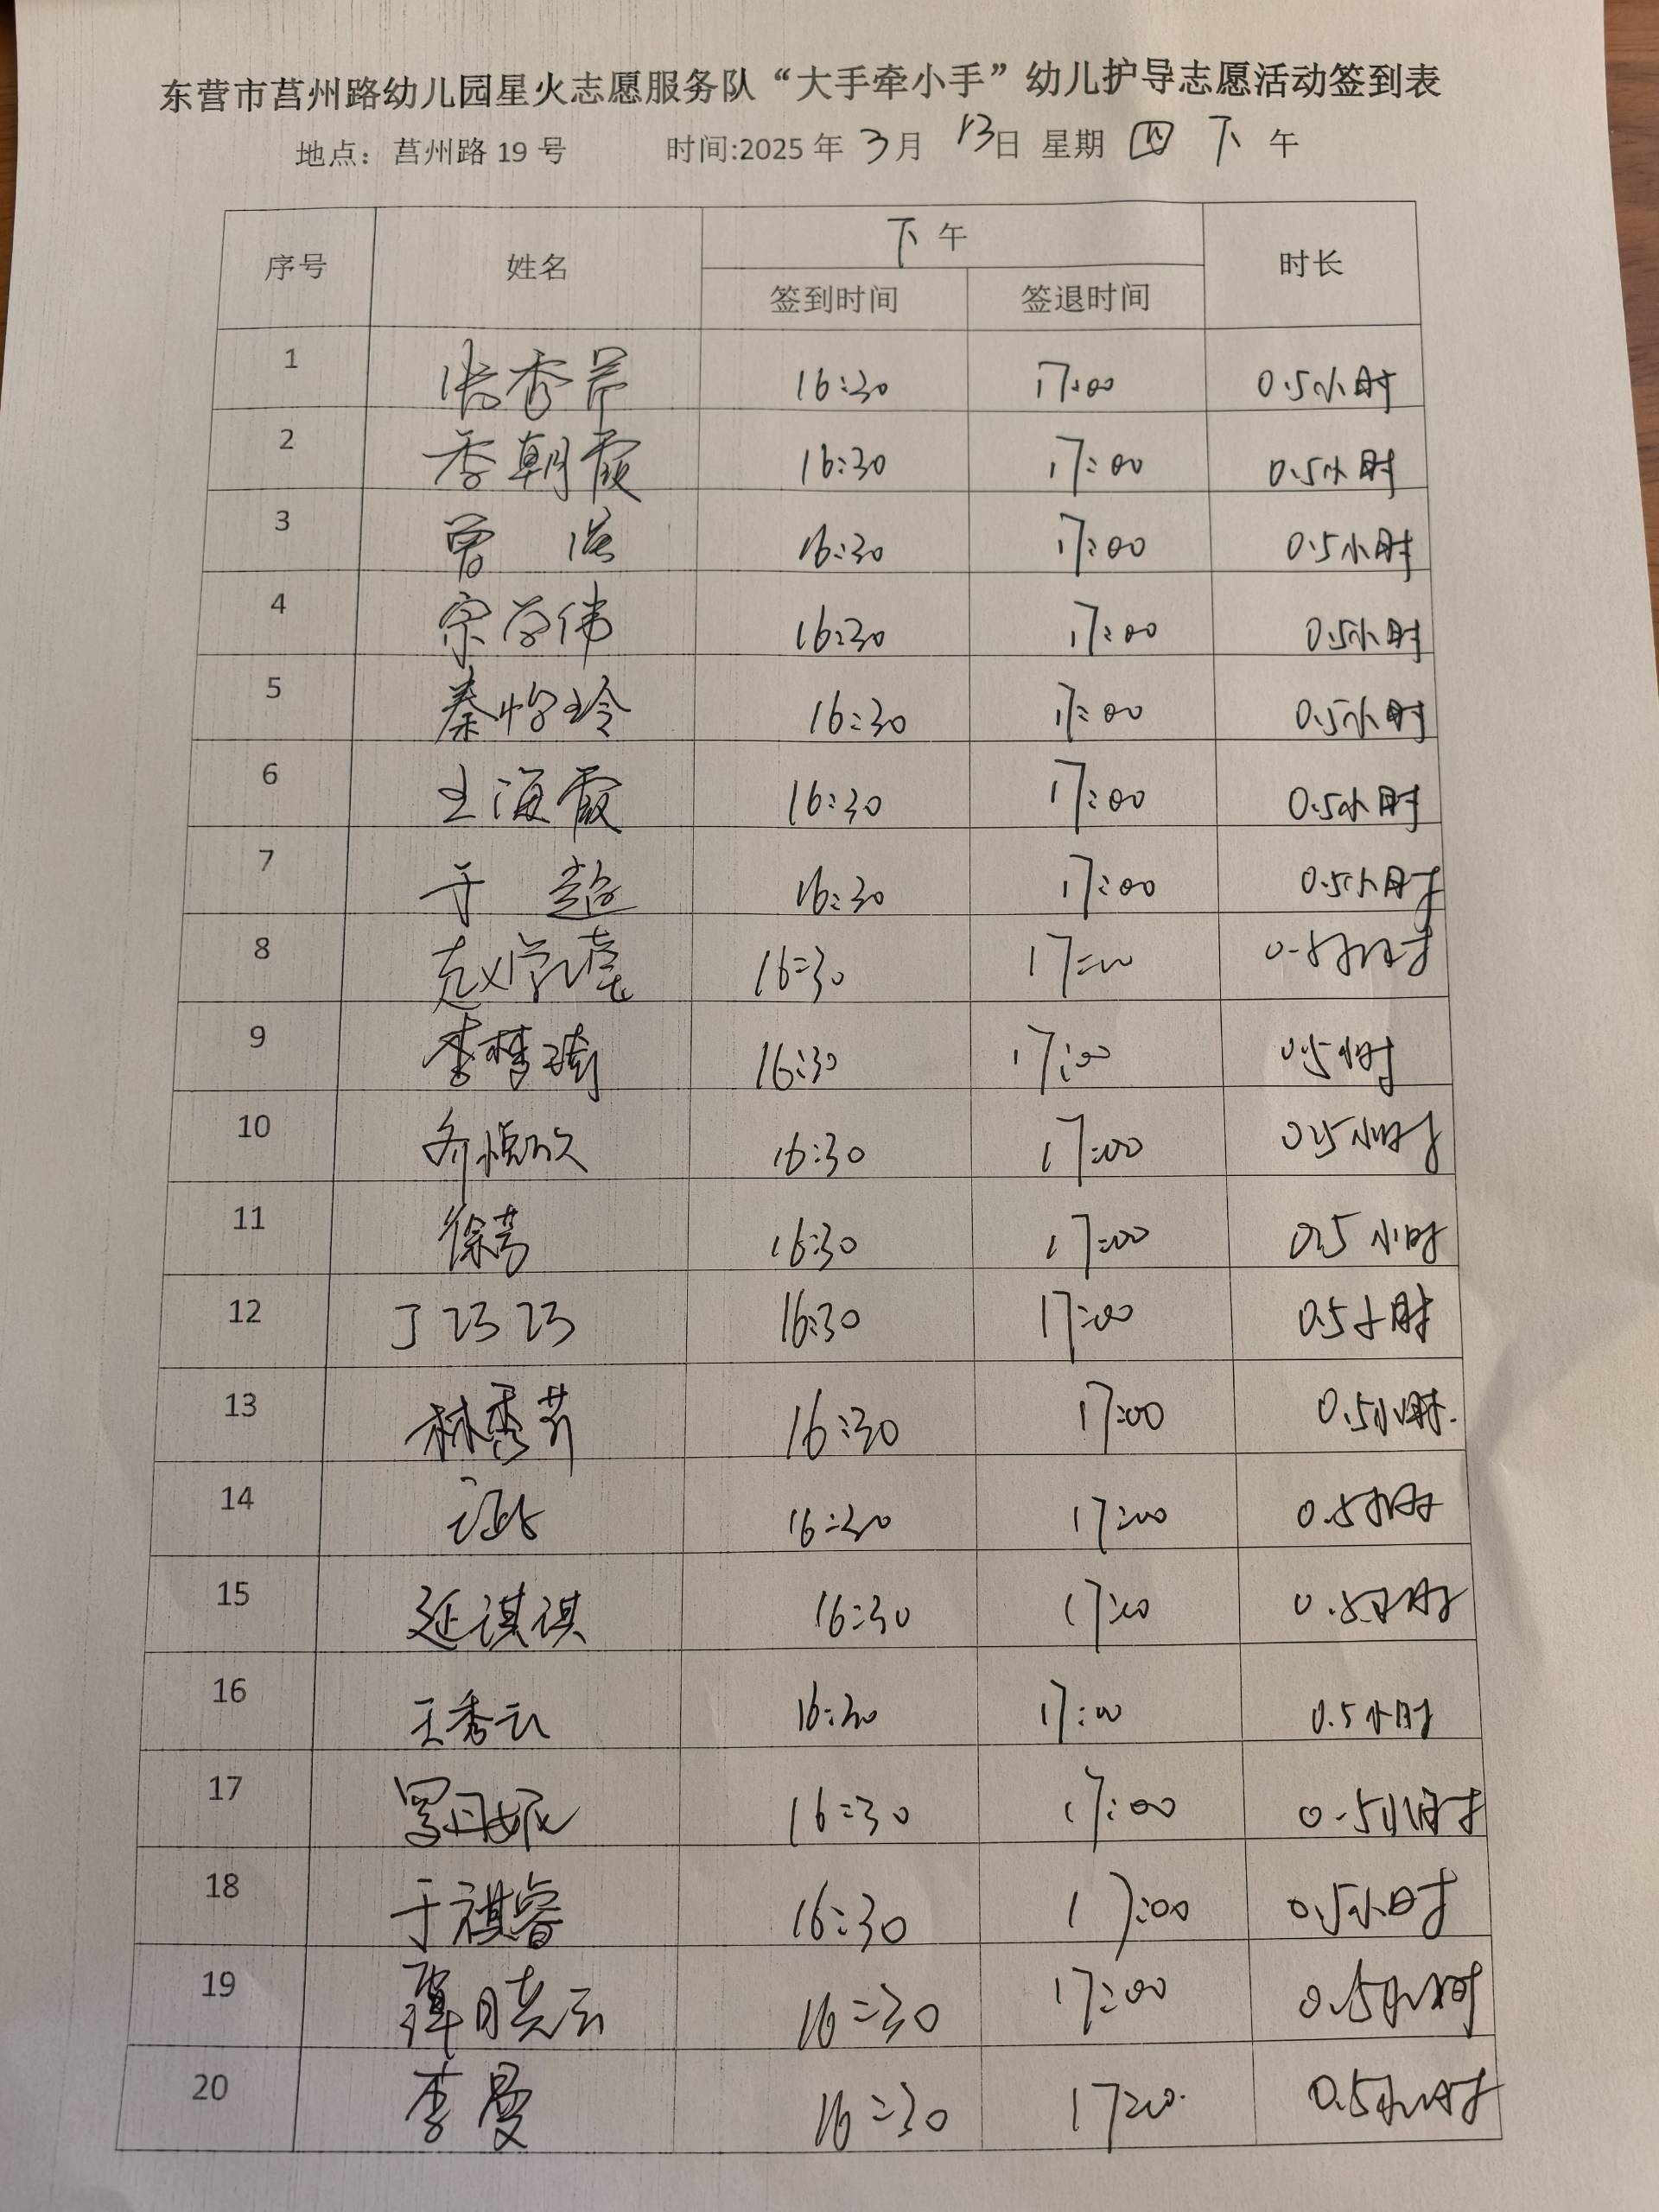 东营市莒州路幼儿园星火志愿服务队“大手牵小手”幼儿护导志愿活动签到表
地点：莒州路 19 号 时间:2025 年 3月 13日 星期 四 下 午
序号 姓名 下 午 时长
签到时间 签退时间
1 张秀芹 16:30 17:00 0.5小时
2 季朝霞 16:30 17:00 0.5小时
3 曾 16:30 17:00 0.5小时
4 宗学伟 16:30 17:00 0.5小时
5 秦怡玲 16:30 17:00 0.5小时
6 王海霞 16:30 17:00 0.5小时
7 于 超 16:30 17:00 0.5小时
8 赵 16:30 17:00 0.5小时
9 李梦瑜 16:30 17:00 0.5小时
10 齐悦欣 16:30 17:00 0.5小时
11 徐芳 16:30 17:00 0.5小时
12 丁巧巧 16:30 17:00 0.5小时
13 林秀芹 16:30 17:00 0.5小时.
14 16:30 17:00 0.5小时
15 延祺祺 16:30 17:00 0.5小时
16 王秀云 16:30 17:00 0.5小时
17 罗丹妮 16:30 17:00 0.5小时
18 于祺睿 16:30 17:00 0.5小时
19 薛晓云 16:30 17:00 0.5小时
20 李曼 16:30 17:00 0.5小时